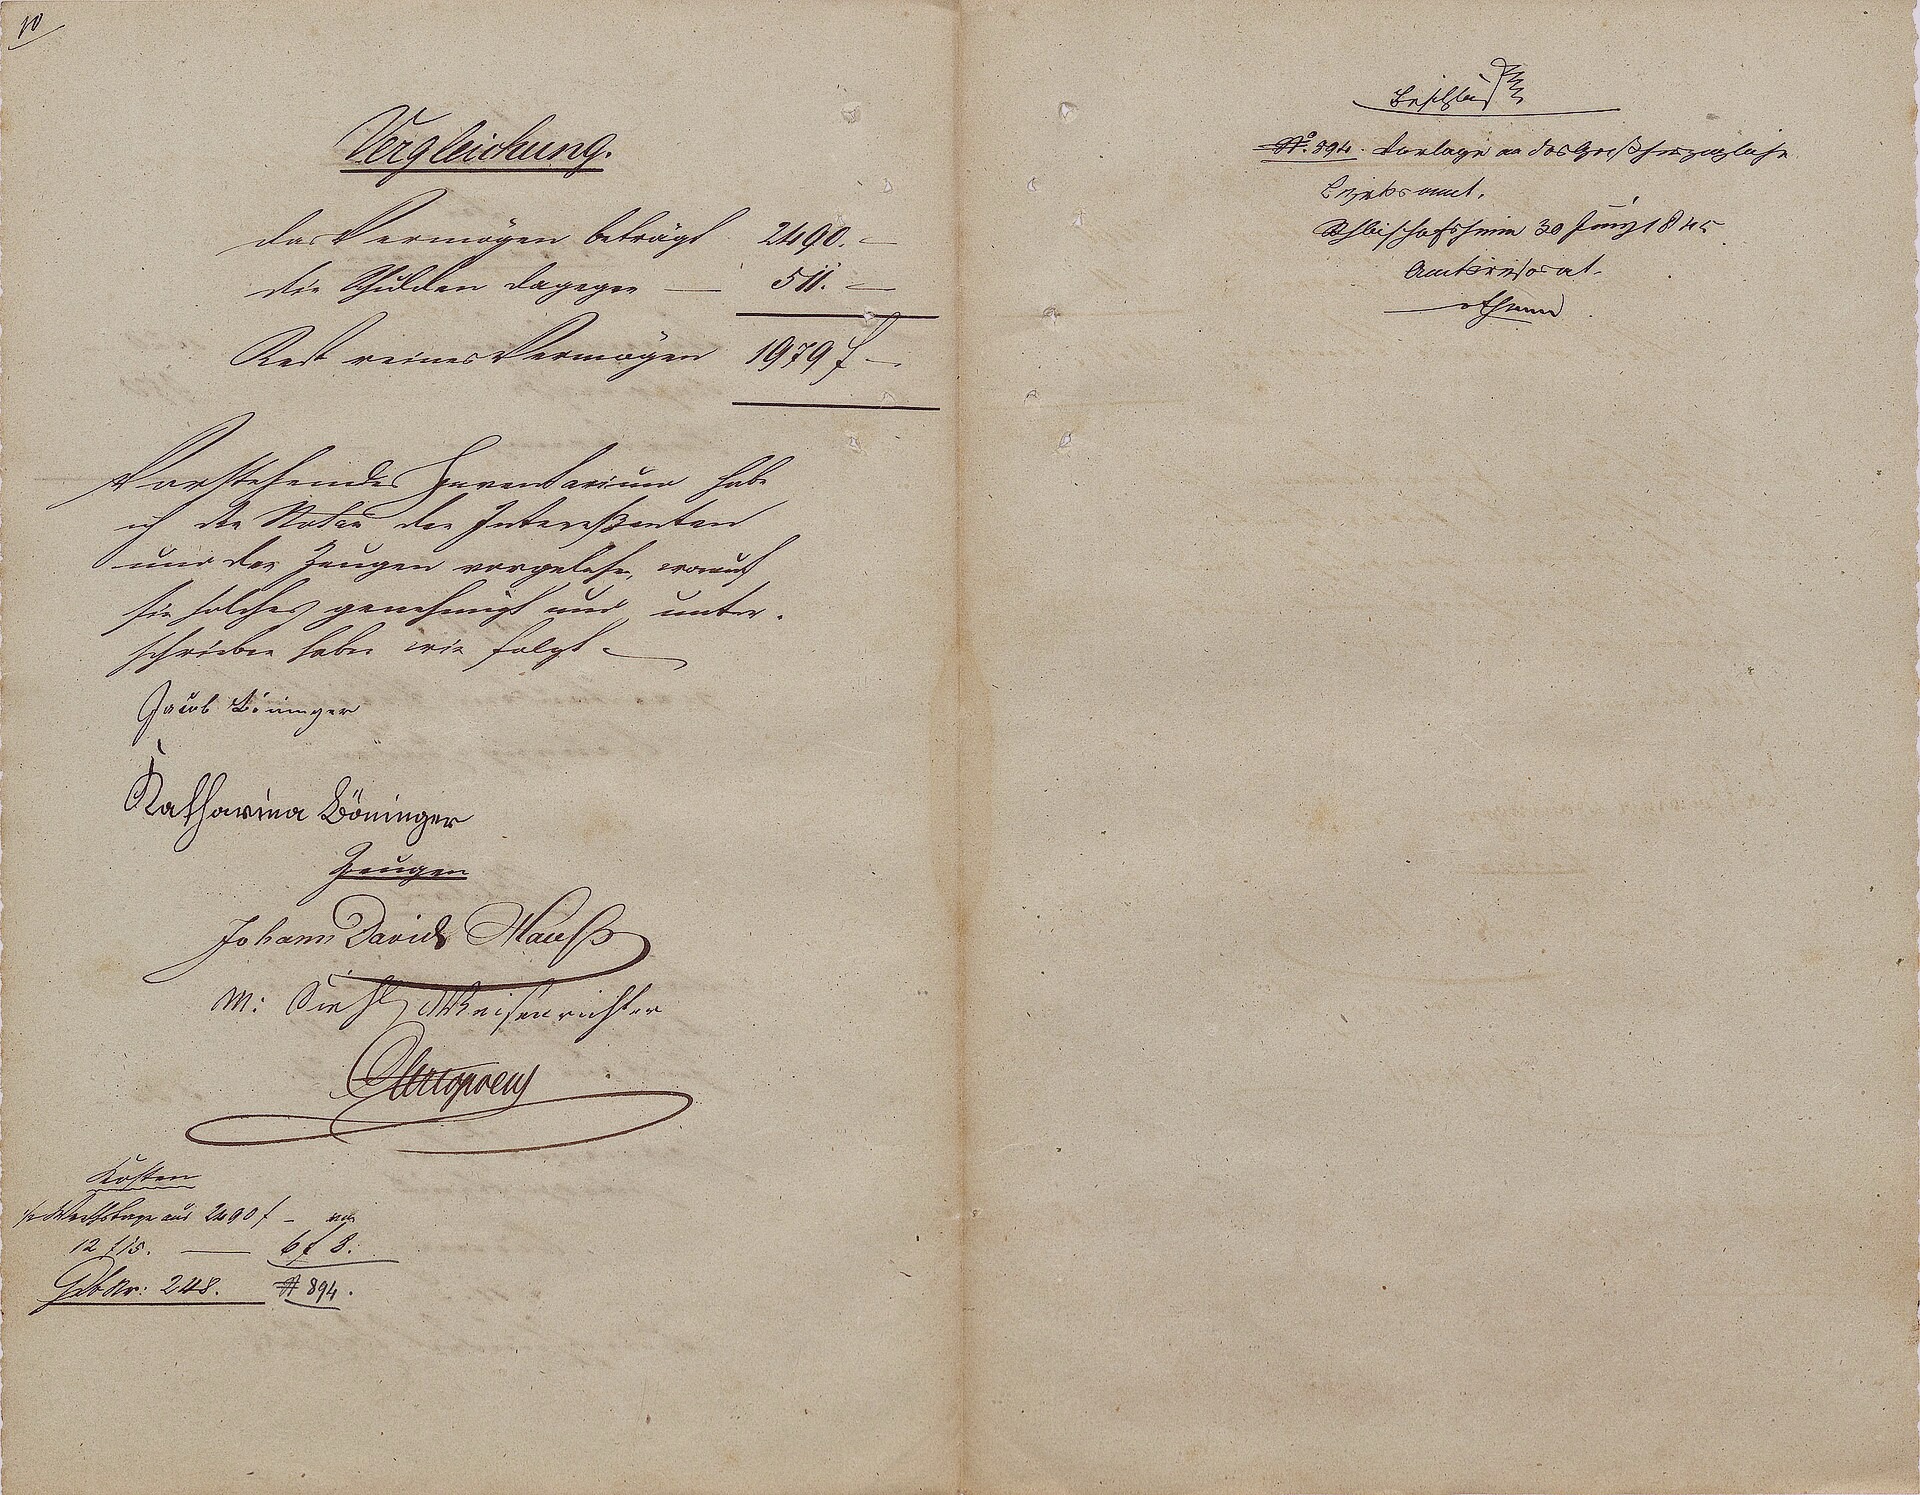 10
Vergleichung.
das Vermögen beträgt 2490. —
die Schulden dagegen — 511. —
Rest reines Vermögen 1979 f —
Vorstehendes Inventarium habe
ich der Notar den Intereßenten
und den Zeugen vorgelesen, worauf
sie solches genehmigt und unter-
schrieben haben wie folgt —
Jacob Böninger
Katharina Böninger
Zeugen
Johann David Mauß
M: Siehl Waisenrichter
Kosten
aus 2490 f —
12 f 15. — 6 f 8.
Geb Nr: 248. # 894.
Beschluß
No. 894. Vorlage an das Großherzogliche
Bezirksamt.
Rhbischofsheim 30 Juny 1845
Amtsrevisorat.